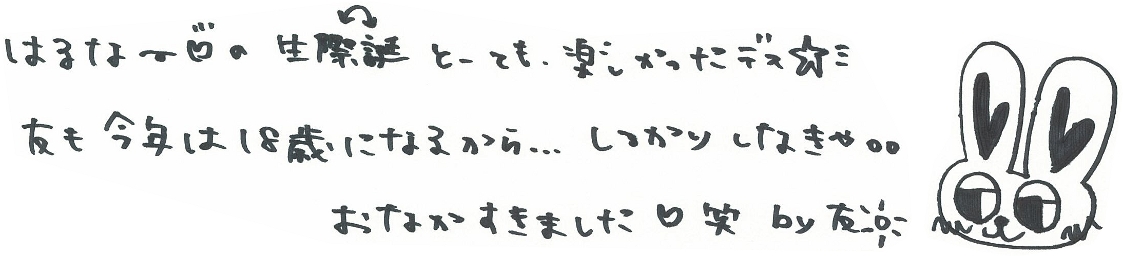 はるなー♡の 生際誕 とーても、楽しかったデス☆ミ
友も今年は18歳になるから... しっかりしなきゃ。。
おなかすきました♡笑 by友